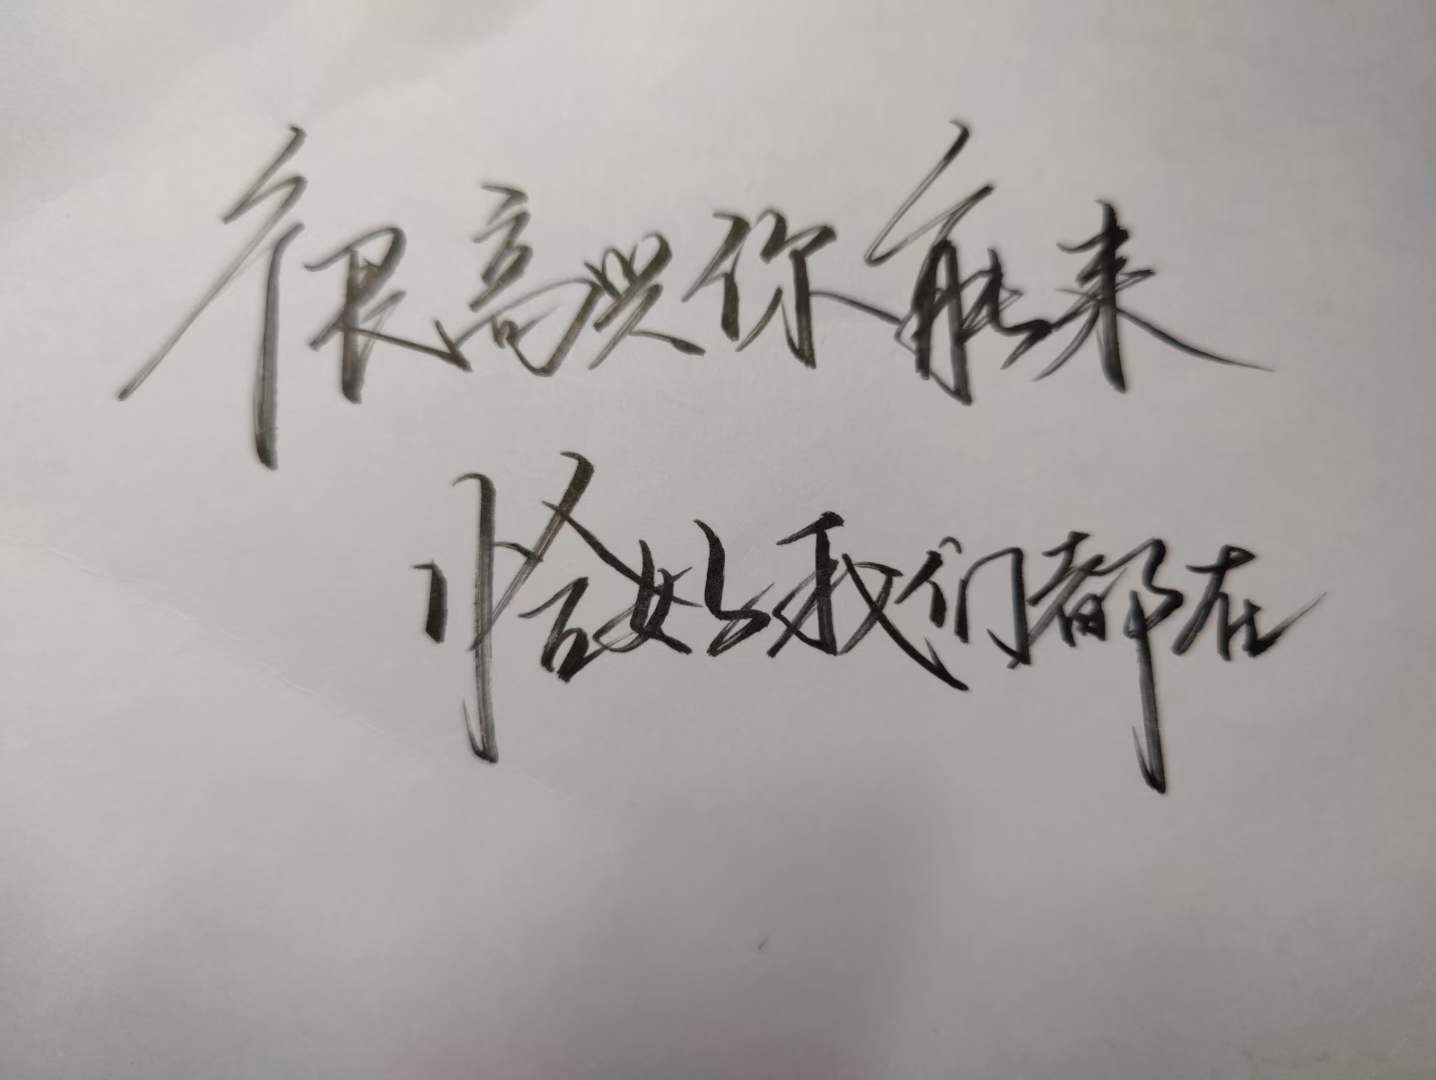 很高兴你能来
恰好我们都在